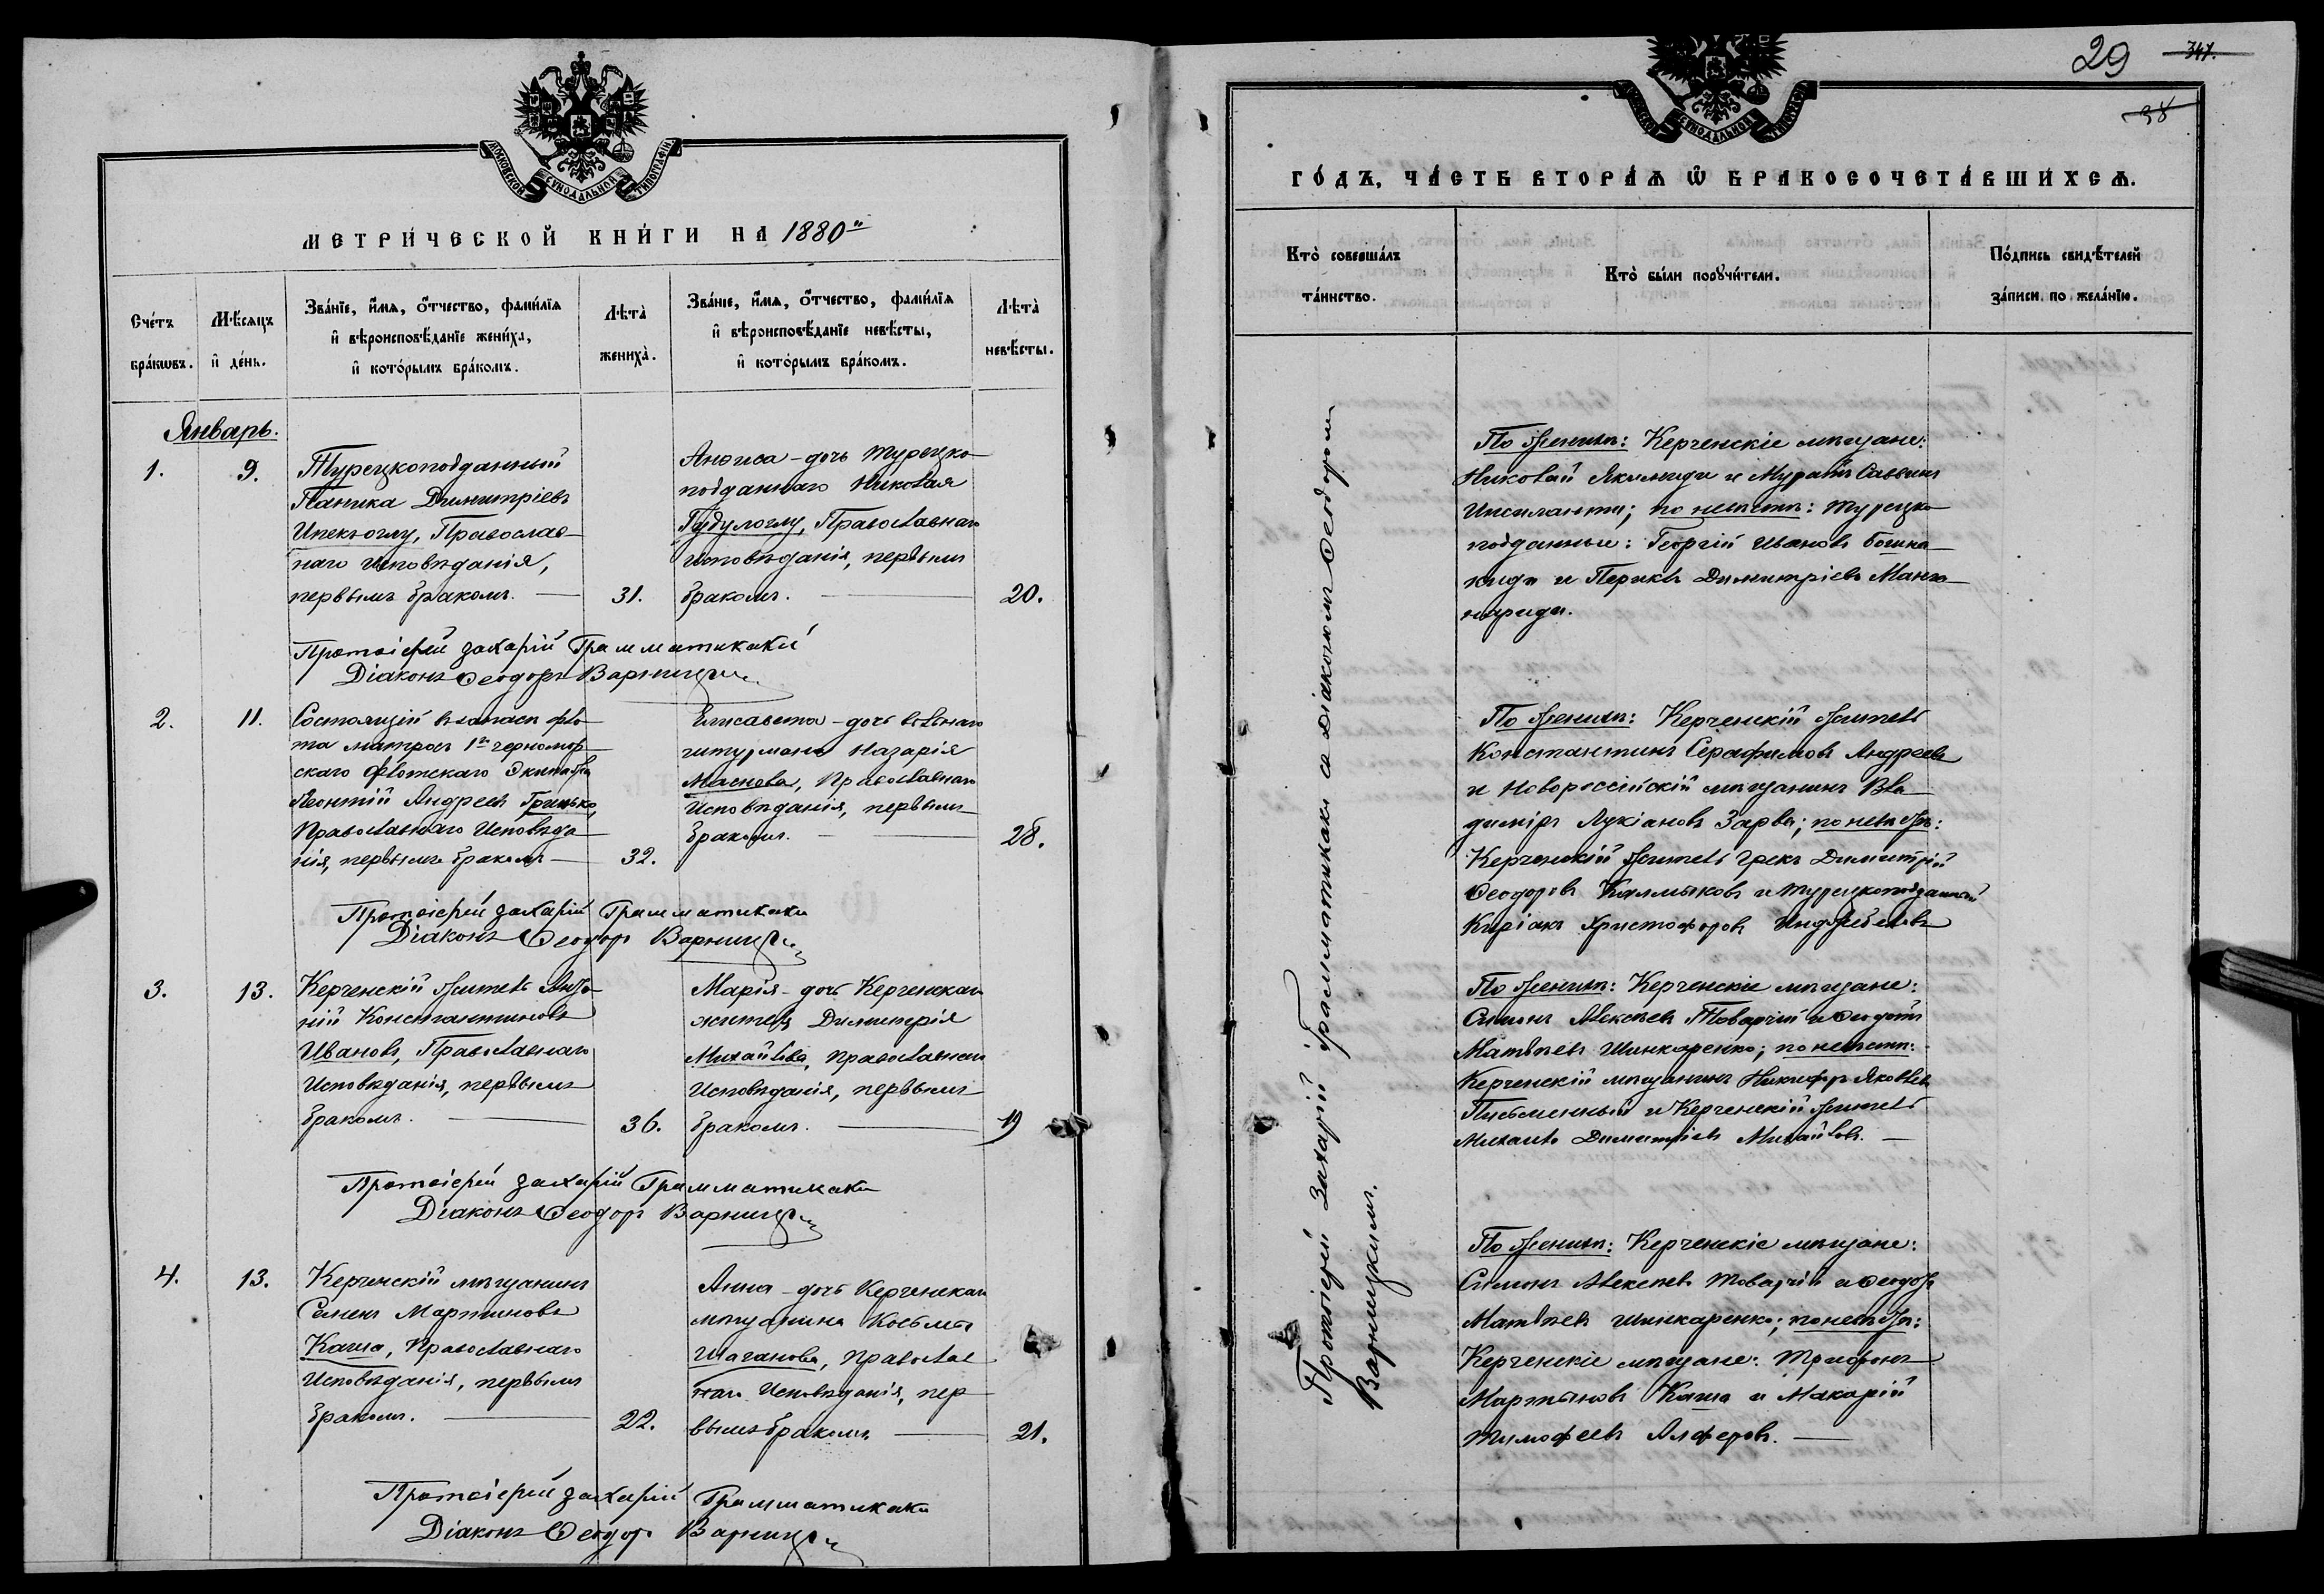 МОСКОВСКОЙ СѴНОДАЛЬНОЙ ТИПОГРАФІИ
МЕТРИ́ЧЕСКОЙ КНИ́ГИ НА 1880й
Сче́тъ бра́кѡвъ.
Мѣ́сяцъ и де́нь.
Зва́нїе, и҆́мѧ, ѻ҆́тчество, фами́лїѧ
и҆ вѣроисповѣ́данїе жениха̀,
и҆ кото́рымъ бра́комъ.
Лѣта̀ жениха̀.
Зва́нїе, и҆́мѧ, ѻ҆́тчество, фами́лїѧ
и҆ вѣроисповѣ́данїе невѣ́сты,
и҆ кото́рымъ бра́комъ.
Лѣта̀ невѣ́сты.
Январь.
1. 9.
Турецкоподданный
Паника Димитріевъ
Ипекъоглу, Православ-
наго Исповѣданія,
первымъ бракомъ. — 31.
Анѳиса - дочь Турецко-
подданнаго Николая
Гудулоглу, Православнаго
Исповѣданія, первымъ
бракомъ. — 20.
Протоіерей Захарій Грамматикаки
Діаконъ Ѳеодоръ Варницкій
2. 11.
Состоящій въ запасѣ фло-
та матросъ 1го черномор-
скаго флотскаго Экипажа
Леонтій Андреевъ Гринько,
Православнаго Исповѣда-
нія, первымъ бракомъ — 32.
Елисавета - дочь вольнаго
штурмана Назарія
Маснова, Православнаго
Исповѣданія, первымъ
бракомъ. — 28.
Протоіерей Захарій Грамматикаки
Діаконъ Ѳеодоръ Варницкій
3. 13.
Керченскій житель
Константиновъ
Ивановъ, Православнаго
Исповѣданія, первымъ
бракомъ. — 36.
Марія - дочь Керченскаго
жителя Димитрія
Михайлова, Православнаго
Исповѣданія, первымъ
бракомъ. — 19
Протоіерей Захарій Грамматикаки
Діаконъ Ѳеодоръ Варницкій
4. 13.
Керченскій мѣщанинъ
Семенъ Мартиновъ
Каша, Православнаго
Исповѣданія, первымъ
бракомъ. — 22.
Анна - дочь Керченскаго
мѣщанина Косьмы
Шаганова, Православ-
наго Исповѣданія, пер-
вымъ бракомъ — 21.
Протоіерей Захарій Грамматикаки
Діаконъ Ѳеодоръ Варницкій
29 347.
38
МОСКОВСКОЙ СѴНОДАЛЬНОЙ ТИПОГРАФІИ
ГО́ДЪ, ЧА́СТЬ ВТОРА́Ѧ Ѡ҆ БРАКОСОЧЕТА́ВШИХСѦ.
Кто̀ соверша́лъ та́инство.
Кто̀ бы́ли порꙋчи́тели.
По́дпись свидѣ́телей за́писи по жела́нїю.
Протоіерей Захарій Грамматикаки со Діакономъ Ѳеодоромъ
Варницкимъ.
По женихѣ: Керченскіе мѣщане:
Николай Якимиди и Муратъ Саввинъ
Ипсиланти; по невѣстѣ: Турецко-
подданные: Георгій Ивановъ
и Периклъ Димитріевъ
По женихѣ: Керченскій житель
Константинъ Серафимовъ Андреевъ
и Новороссійскій мѣщанинъ Вла-
диміръ Лукіановъ Зарва; по невѣстѣ:
Керченскій житель Грекъ Димитрій
Ѳеодоровъ Калмыковъ и Турецкоподданный
Киріакъ Христофоровъ
По женихѣ: Керченскіе мѣщане:
Симонъ Алексѣевъ Товарчій и Ѳеодотъ
Матвѣевъ Шинкаренко; по невѣстѣ:
Керченскій мѣщанинъ Никифръ Яковлевъ
Письменный и Керченскій житель
Михаилъ Димитріевъ Михайловъ. —
По женихѣ: Керченскіе мѣщане:
Симонъ Алексѣевъ Товарчій и Ѳеодотъ
Матвѣевъ Шинкаренко; по невѣстѣ:
Керченскіе мѣщане: Трифонъ
Мартыновъ Каша и Макарій
Тимофеевъ Алферовъ. —